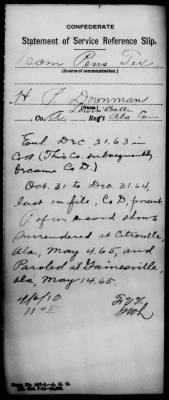 CONFEDERATE
Statement of Service Reference Slip.
Com Pens Tex
(Source of communication.)
H P Downman
(Name.)
Co. A, Reg't Ala Cav
Enl Dec. 31.63 in
Co A (This Co. subsequently
became Co D.)
Oct. 31 to Dec. 31.64,
last on file, Co D, present
record shows
surrendered at Citronelle,
Ala, May 4.65, and
Paroled at Gainesville,
Ala, May 14.65.